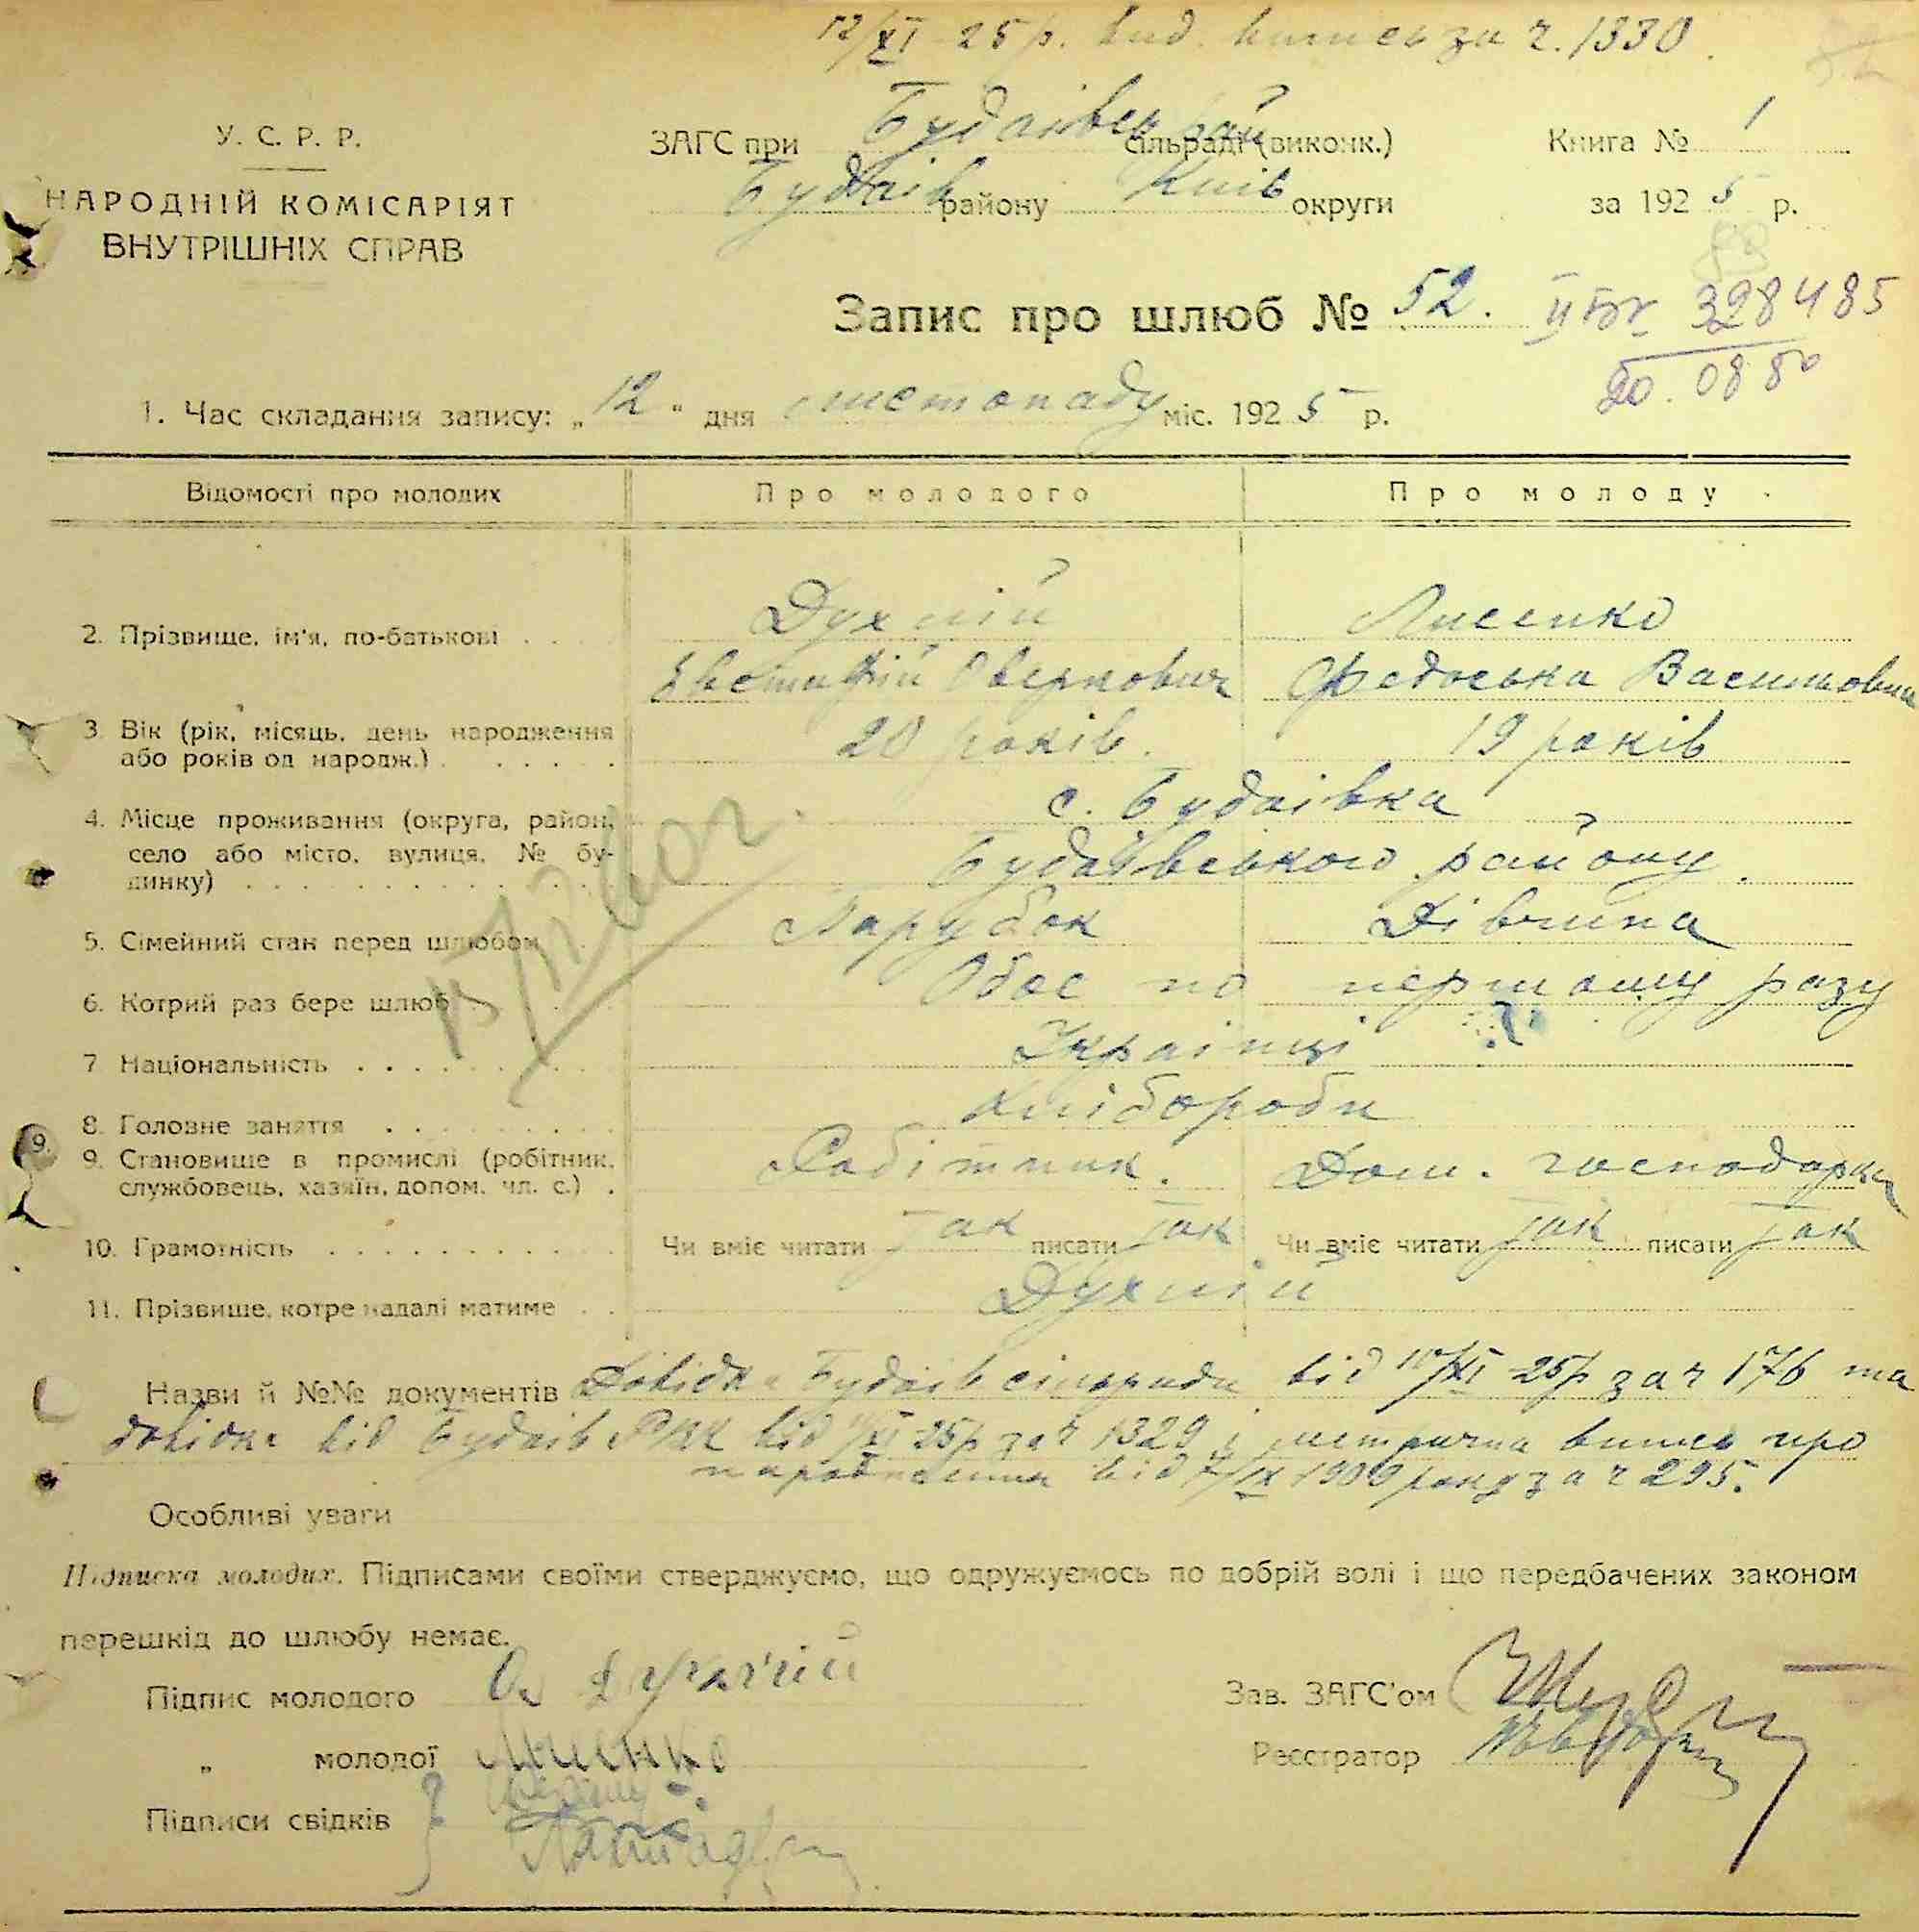 12/XI 25 р. вид. випись за ч. 1330.
У. С. Р. Р.
НАРОДНІЙ КОМІСАРІЯТ
ВНУТРІШНІХ СПРАВ
ЗАГС при Будаівськ рай сільраді (виконк.)
Будаів району Київ округи
Книга № 1
за 1925 р.
Запис про шлюб № 52.
328485
20.08 80
1. Час складання запису: „12" дня листопаду міс. 1925 р.
Відомості про молодих Про молодого Про молоду
2. Прізвище, ім'я, по-батькові Духній Лисенко
Евстафій Оверкович Федоська Васильовна
3. Вік (рік, місяць, день народження або років од народж.) 20 років. 19 років
4. Місце проживання (округа, район, село або місто, вулиця, № будинку) с. Будаівка
Будаівського району.
5. Сімейний стан перед шлюбом Парубок Дівчина
6. Котрий раз бере шлюб Обоє по першому разу
7 Національність Украінці
8. Головне заняття Хлібороби
9. Становище в промислі (робітник, службовець, хазяїн, допом. чл. с.) Робітник. Дом. господарка
10. Грамотність Чи вміє читати так писати так Чи вміє читати так писати так
11. Прізвище, котре надалі матиме Духній
Назви й №№ документів Довідка Будаів сільради від 10/XI 25 р за ч 176 та
довідка від Будаів РВК від /XI 25 р за ч 1329 і метрична випись про
народження від 7/IX 1909 року за ч 295.
Особливі уваги
Підписка молодих. Підписами своїми стверджуємо, що одружуємось по добрій волі і що передбачених законом
перешкід до шлюбу немає.
Підпис молодого Духній
Зав. ЗАГС'ом
„ молодої Лисенко
Реєстратор
Підписи свідків